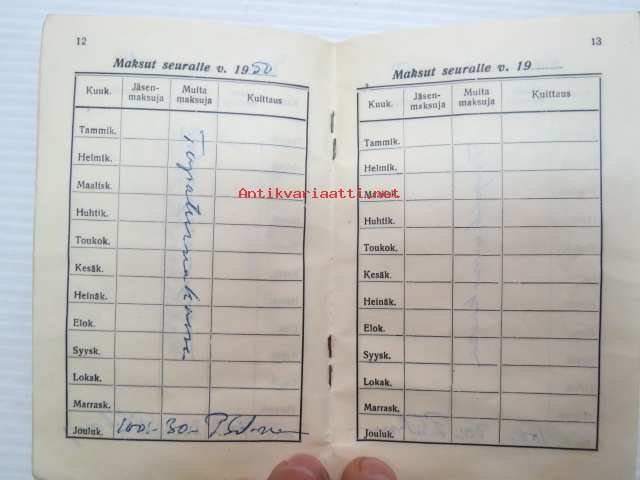 12
Maksut seuralle v. 1950
Kuuk. Jäsen-maksuja Muita maksuja Kuittaus
Tammik.
Helmik.
Maalisk.
Huhtik.
Toukok.
Kesäk.
Heinäk.
Elok.
Syysk.
Lokak.
Marrask.
Jouluk. 100:- 30:-
13
Maksut seuralle v. 19
Kuuk. Jäsen-maksuja Muita maksuja Kuittaus
Tammik.
Helmik.
Maalisk.
Huhtik.
Toukok.
Kesäk.
Heinäk.
Elok.
Syysk.
Lokak.
Marrask.
Jouluk.
Antikvariaatti.net
Antikvariaatti.net